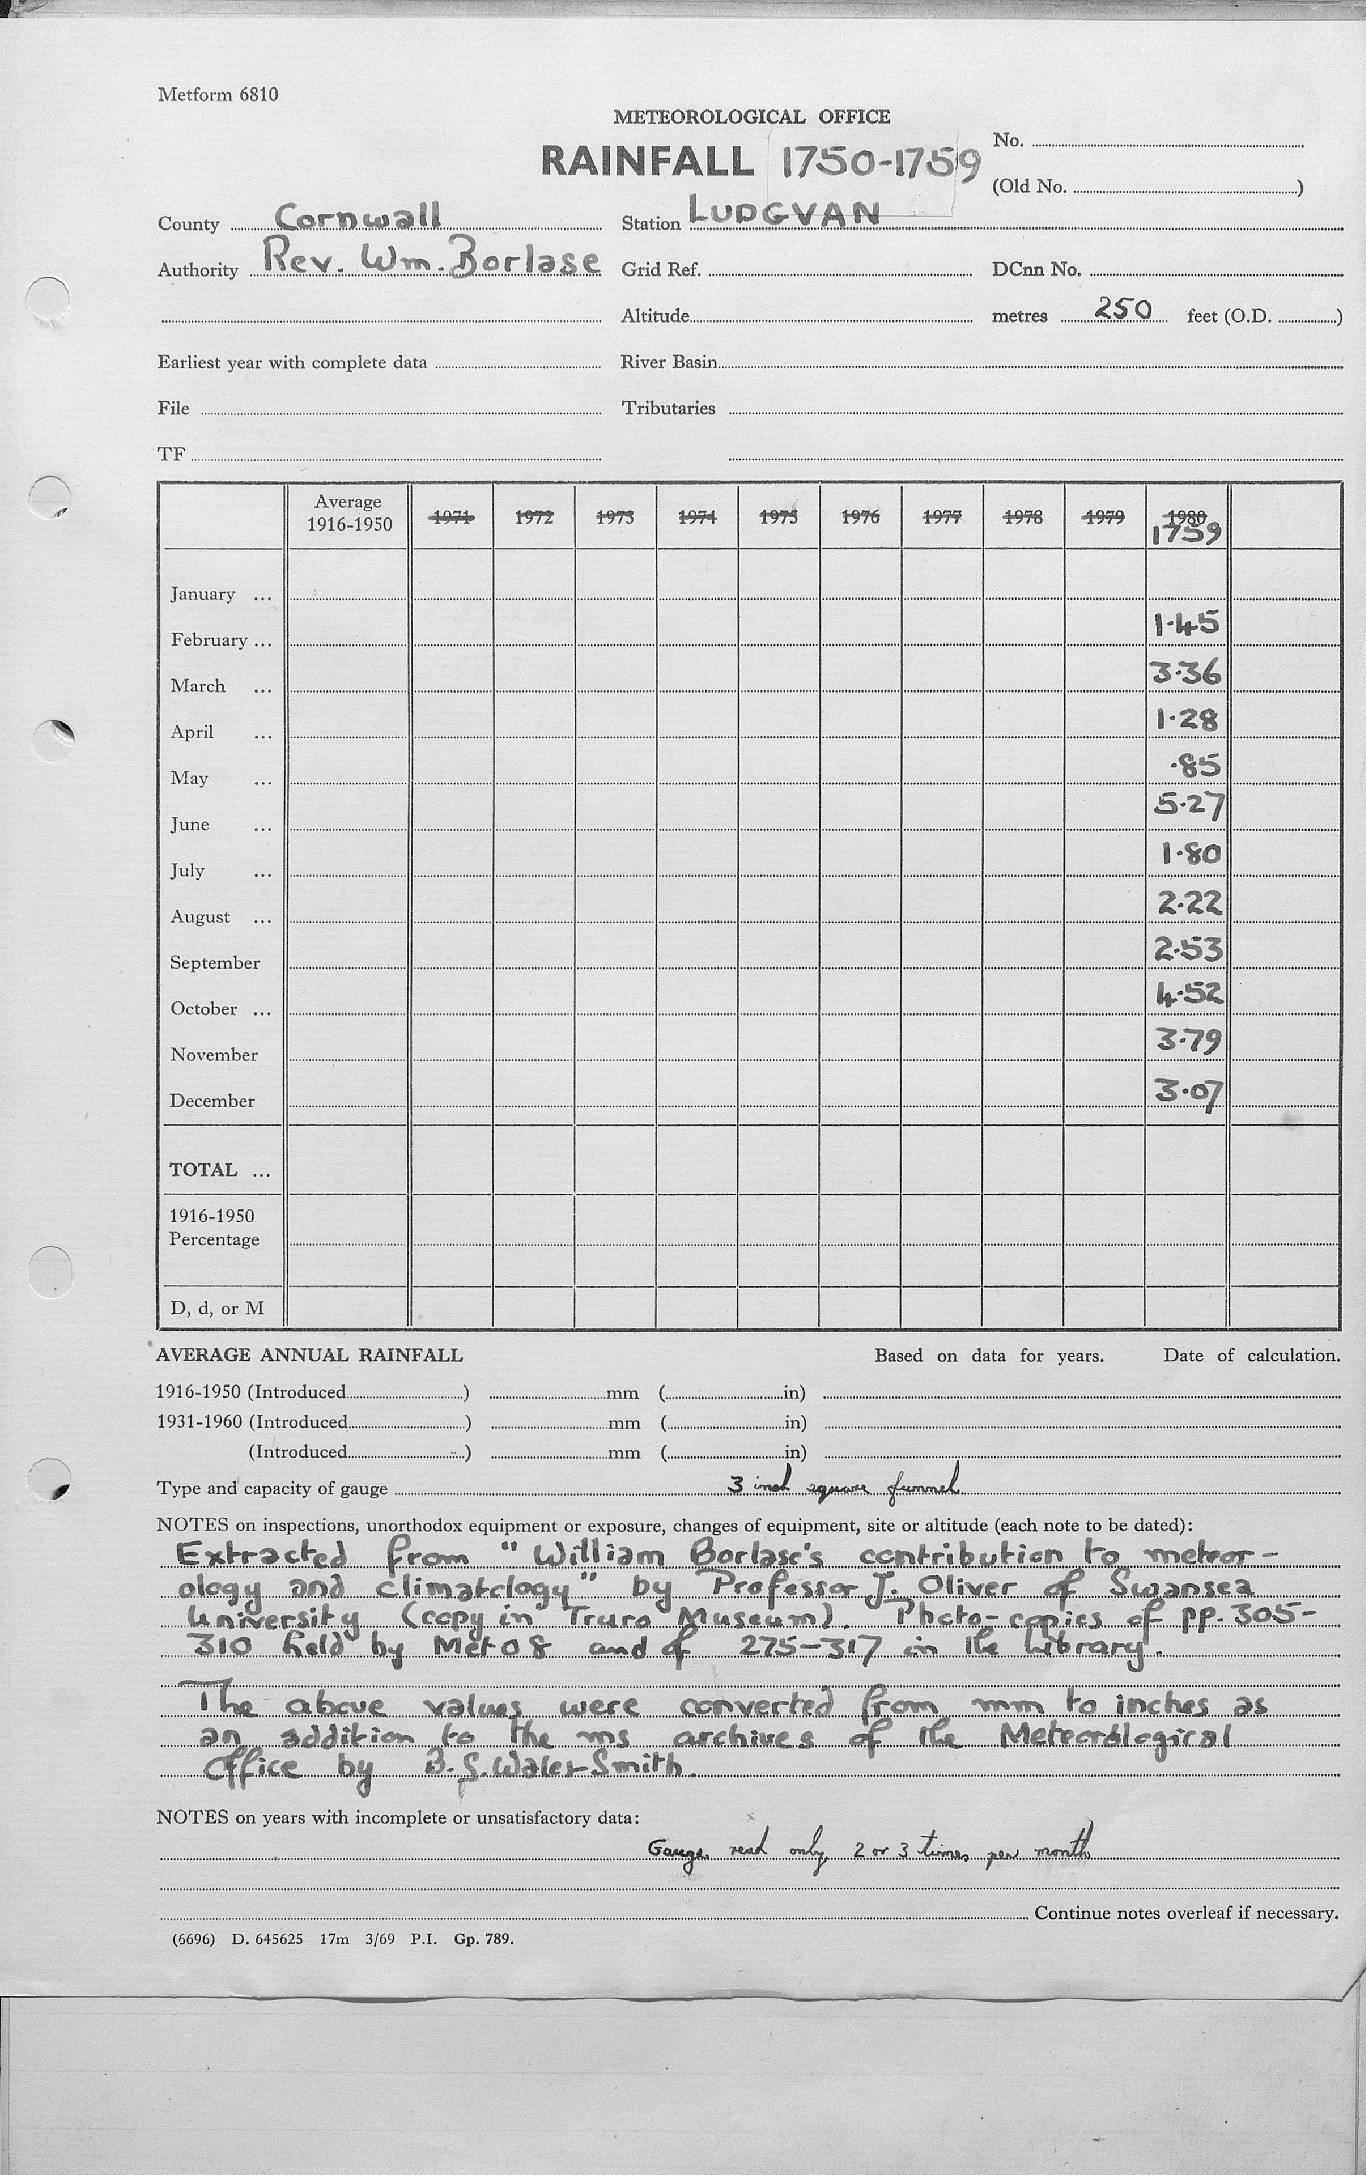 Metform 6810
METEOROLOGICAL OFFICE
RAINFALL 1750-1759
No.
(Old No. )
County Cornwall Station LUDGVAN
Authority Rev. Wm. Borlase Grid Ref. DCnn No.
Altitude metres 250 feet (O.D. )
Earliest year with complete data River Basin
File Tributaries
TF
Average
1916-1950 1971 1972 1973 1974 1975 1976 1977 1978 1979 1980
1759
January ...
February ... 1.45
March ... 3.36
April ... 1.28
May ... .85
June ... 5.27
July ... 1.80
August ... 2.22
September 2.53
October ... 4.52
November 3.79
December 3.07
TOTAL ...
1916-1950
Percentage
D, d, or M
AVERAGE ANNUAL RAINFALL Based on data for years. Date of calculation.
1916-1950 (Introduced ) mm ( in)
1931-1960 (Introduced ) mm ( in)
(Introduced ) mm ( in)
Type and capacity of gauge 3 inch square funnel
NOTES on inspections, unorthodox equipment or exposure, changes of equipment, site or altitude (each note to be dated):
Extracted from "William Borlase's contribution to meteor-
ology and climatology" by Professor J. Oliver of Swansea
University (copy in Truro Museum). Photo-copies of pp. 305-
310 held by Met O 8 and of 275-317 in the library.
The above values were converted from mm to inches as
an addition to the ms archives of the Meteorological
Office by B.G. Wales-Smith.
NOTES on years with incomplete or unsatisfactory data:
Gauge read only 2 or 3 times per month
Continue notes overleaf if necessary.
(6696) D. 645625 17m 3/69 P.I. Gp. 789.